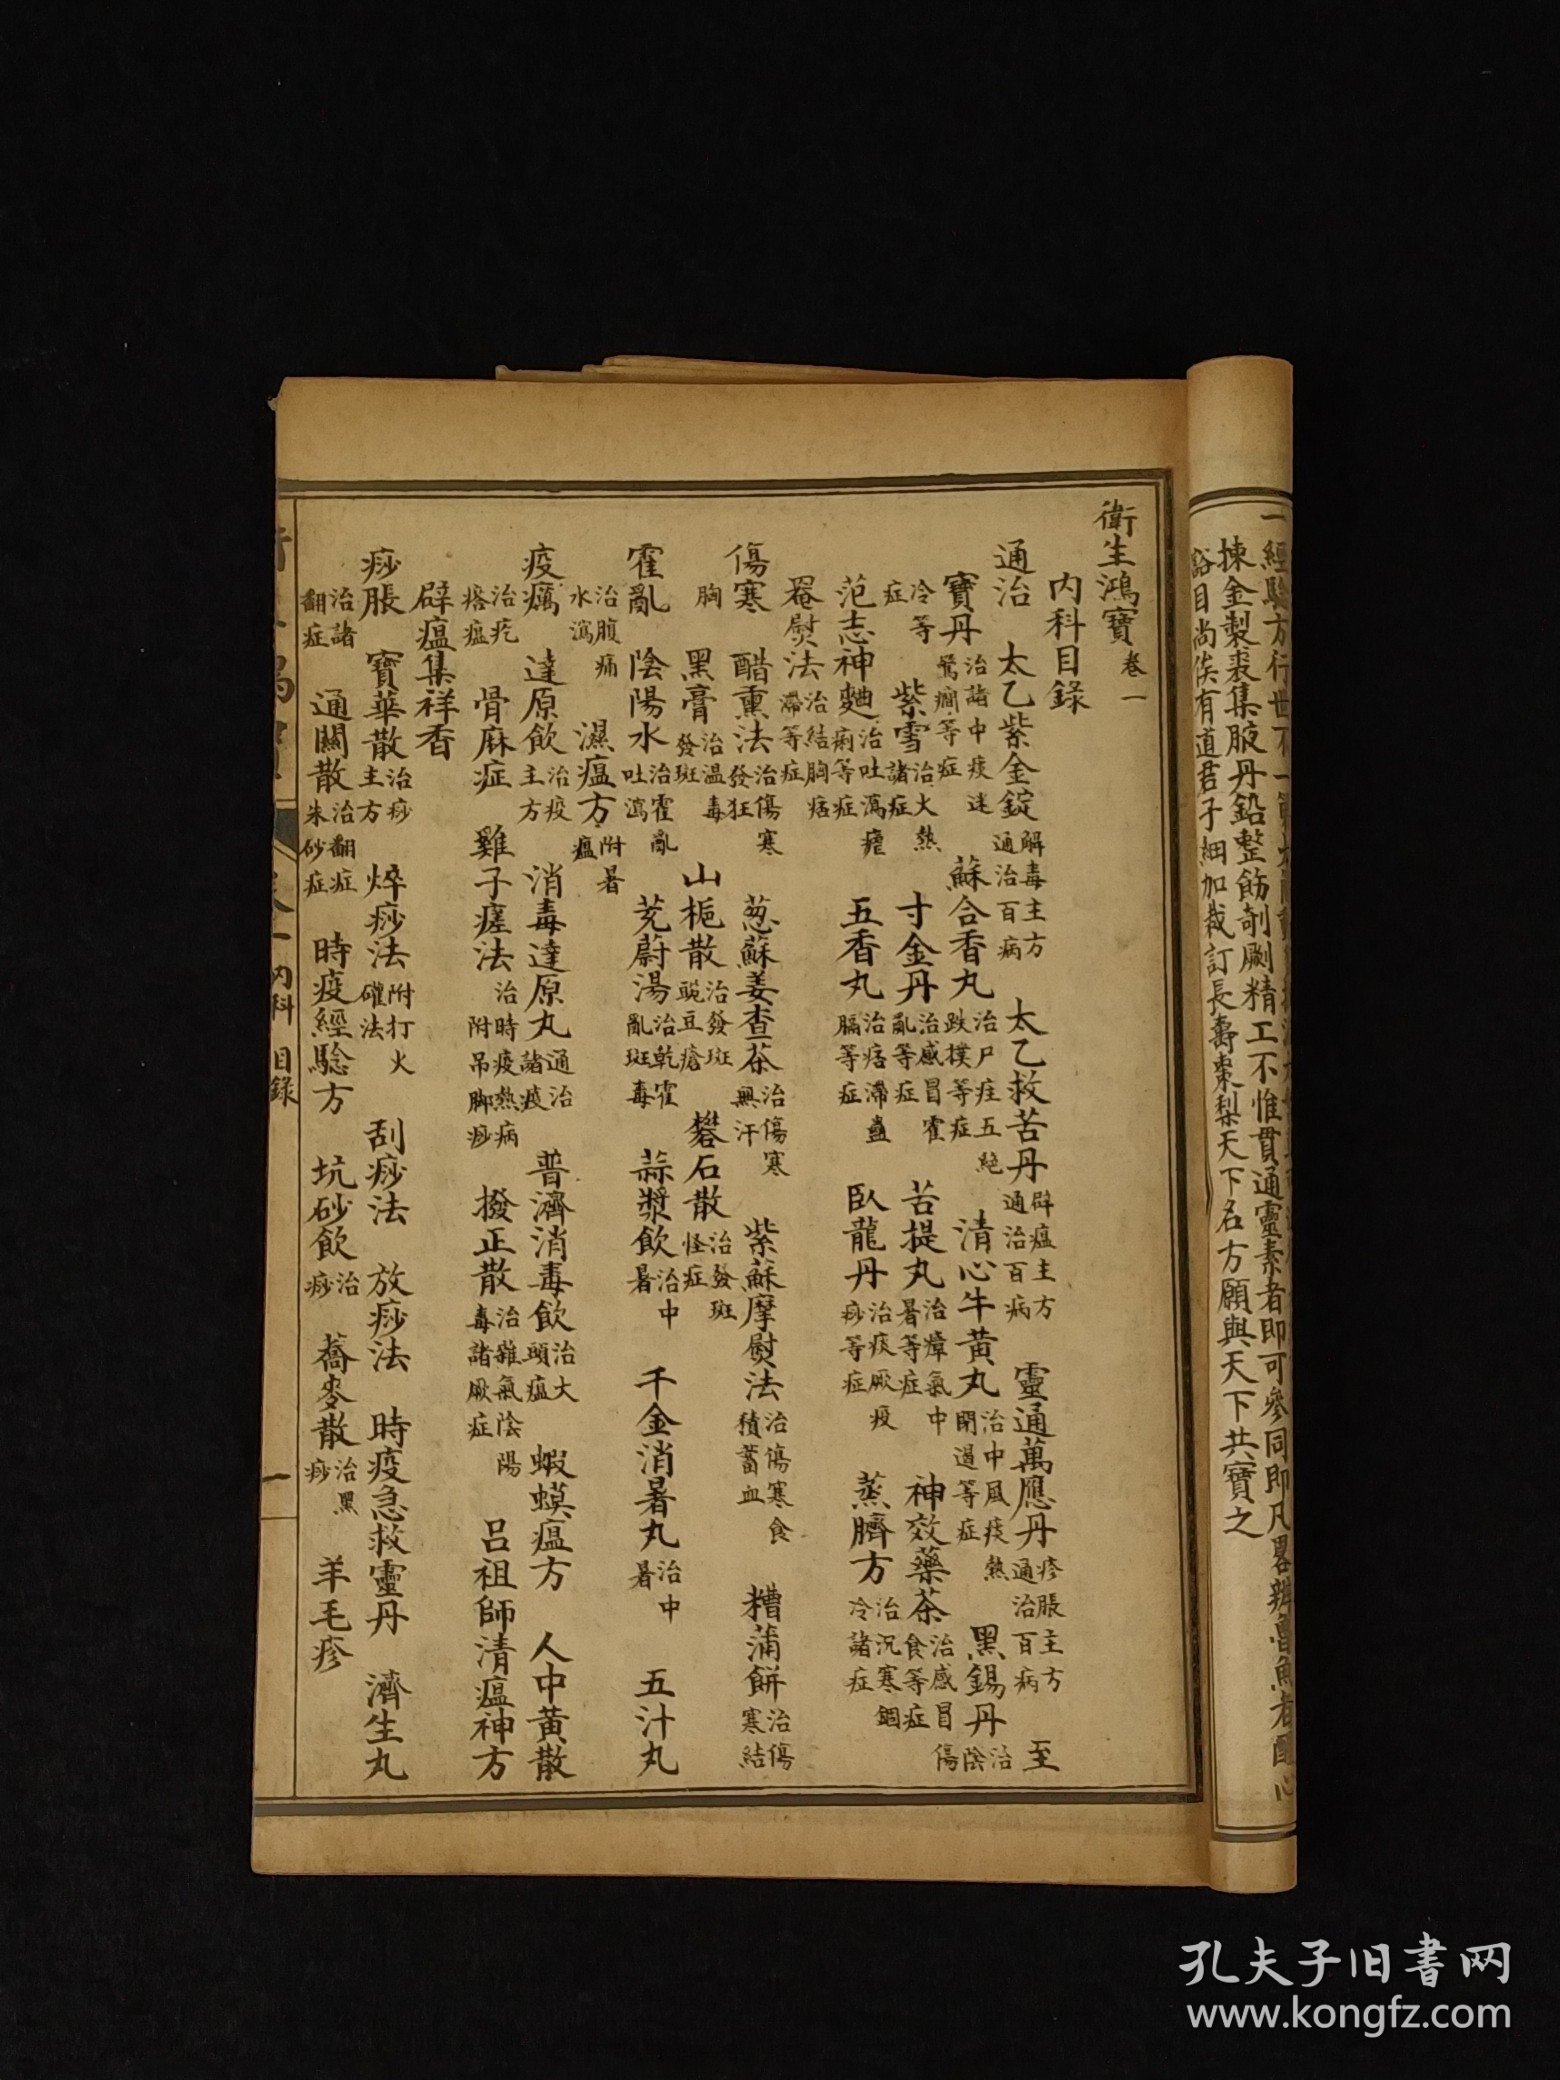 一經驗方行世不一
揀金製裘集腋丹鉛整飭剞劂精工不惟貫通靈素者即可參同即凡畧辨魯魚者
谿目尚俟有道君子細加裁訂長壽棗梨天下名方願與天下共寶之
衛生鴻寶卷一
內科目錄
通治 太乙紫金錠解毒主方通治百病 太乙救苦丹辟瘟主方通治百病 靈通萬應丹疹脹主方通治百病 至
寶丹治諸中痰迷驚癇等症 蘇合香丸治尸疰五絕跌撲等症 清心牛黃丸治中風痰熱閉遏等症 黑錫丹治陰傷
冷等症 紫雪治火熱諸症 寸金丹治感冒霍亂等症 苦提丸治瘴氣中暑等症 神效藥茶治感冒食等症
范志神麯治吐瀉瘧痢等症 五香丸治痞滯蠱膈等症 臥龍丹治痰厥疫痧等症 蒸臍方治沉寒錮冷諸症
罨熨法治結胸痞滯等症
傷寒 醋熏法治傷寒發狂 葱蘇姜查茶治傷寒無汗 紫蘇摩熨法治傷寒食積蓄血 糟蒲餅治傷寒結
胸 黑膏治温毒發斑 山梔散治發斑豌豆瘡 礬石散治發斑怪症
霍亂 陰陽水治霍亂吐瀉 茺蔚湯治乾霍亂斑毒 蒜漿飲治中暑 千金消暑丸治中暑 五汁丸
治腹痛水瀉 濕瘟方附暑瘟
疫癘 達原飲治疫主方 消毒達原丸通治諸疫 普濟消毒飲治大頭瘟 蝦蟆瘟方 人中黃散
治疙瘩瘟 骨麻症 雞子瘥法治時疫熱病附吊脚痧 撥正散治雜氣陰陽毒諸厥症 呂祖師清瘟神方
辟瘟集祥香
痧脹 寶華散治痧主方 焠痧法附打火礶法 刮痧法 放痧法 時疫急救靈丹 濟生丸
治諸翻症 通關散治翻症朱砂症 時疫經驗方 坑砂飲治痧 蕎麥散治黑痧 羊毛疹
卷一 內科 目錄
一
孔夫子旧書网
www.kongfz.com